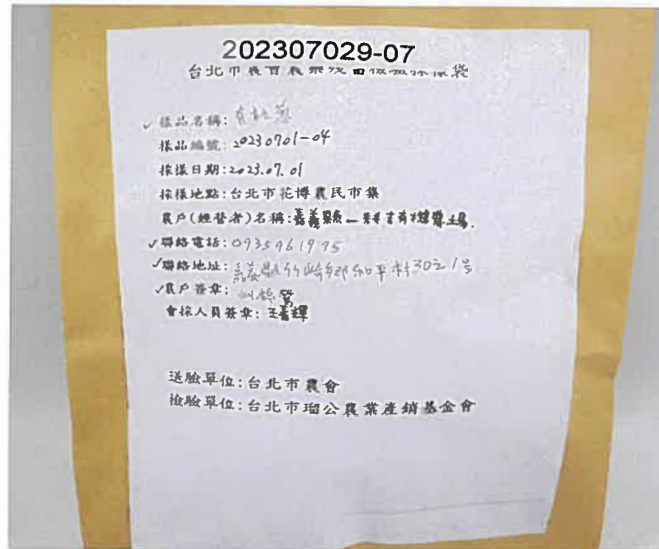 202307029-07
台北市農會農藥殘留檢驗採樣袋
✓樣品名稱:有機蔥
樣品編號:20230701-04
採樣日期:2023.07.01
採樣地點:台北市花博農民市集
農戶(經營者)名稱:嘉義縣一籽吉有機農場.
✓聯絡電話:0935961975
✓聯絡地址:嘉義縣竹崎鄉和平村30之1号
✓農戶簽章:
會採人員簽章:
送驗單位:台北市農會
檢驗單位:台北市瑠公農業產銷基金會